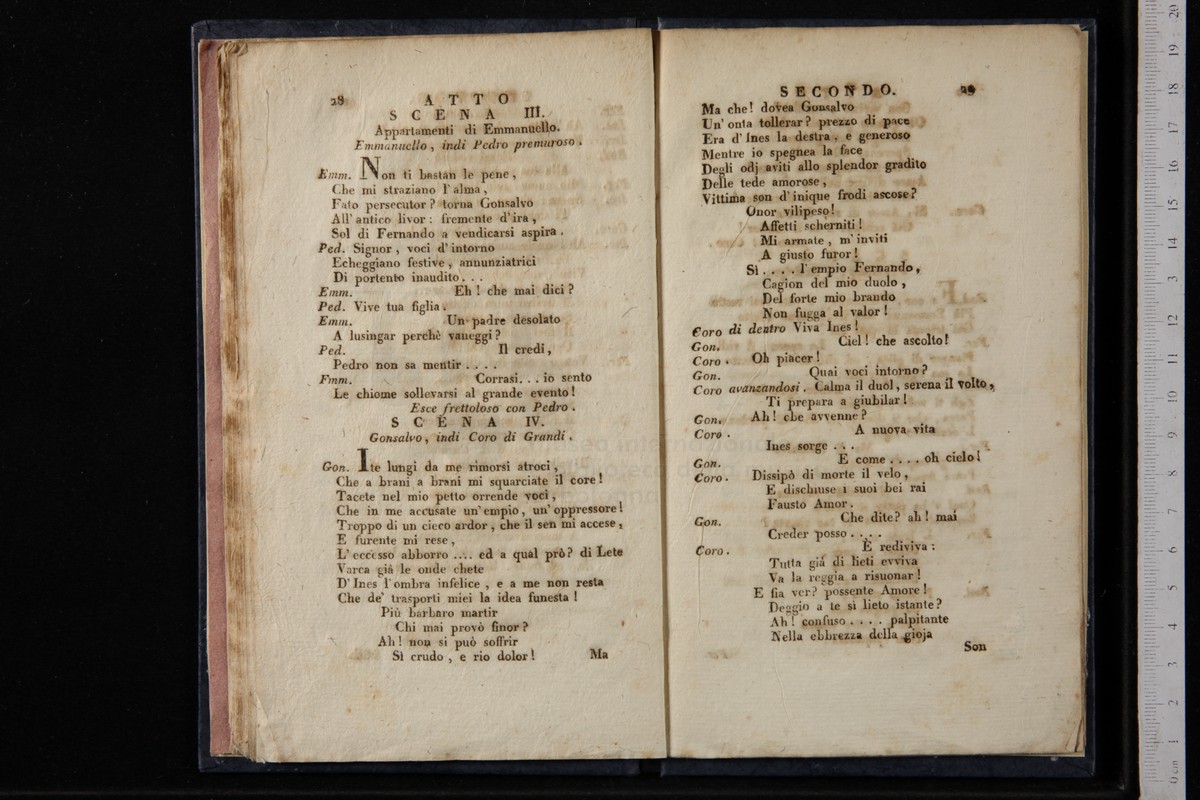 28 ATTO
SCENA III.
Appartamenti di Emmanuello.
Emmanuello, indi Pedro premuroso.
Emm. Non ti bastan le pene,
Che mi straziano l'alma,
Fato persecutor? torna Gonsalvo
All'antico livor: fremente d'ira,
Sol di Fernando a vendicarsi aspira.
Ped. Signor, voci d'intorno
Echeggiano festive, annunziatrici
Di portento inaudito. . .
Emm. Eh! che mai dici?
Ped. Vive tua figlia.
Emm. Un padre desolato
A lusingar perchè vaneggi?
Ped. Il credi,
Pedro non sa mentir . . . .
Fmm. Corrasi. . . io sento
Le chiome sollevarsi al grande evento!
Esce frettoloso con Pedro.
SCENA IV.
Gonsalvo, indi Coro di Grandi.
Gon. Ite lungi da me rimorsi atroci,
Che a brani a brani mi squarciate il core!
Tacete nel mio petto orrende voci,
Che in me accusate un'empio, un'oppressore!
Troppo di un cieco ardor, che il sen mi accese,
E furente mi rese,
L'eccesso abborro .... ed a qual prò? di Lete
Varca già le onde chete
D'Ines l'ombra infelice, e a me non resta
Che de' trasporti miei la idea funesta!
Più barbaro martir
Chi mai provò finor?
Ah! non si può soffrir
Sì crudo, e rio dolor!
Ma
SECONDO. 29
Ma che! dovea Gonsalvo
Un'onta tollerar? prezzo di pace
Era d'Ines la destra, e generoso
Mentre io spegnea la face
Degli odj aviti allo splendor gradito
Delle tede amorose,
Vittima son d'inique frodi ascose?
Onor vilipeso!
Affetti scherniti!
Mi armate, m'inviti
A giusto furor!
Sì . . . . l'empio Fernando,
Cagion del mio duolo,
Del forte mio brando
Non fugga al valor!
Coro di dentro Viva Ines!
Gon. Ciel! che ascolto!
Coro. Oh piacer!
Gon. Quai voci intorno?
Coro avanzandosi. Calma il duol, serena il volto,
Ti prepara a giubilar!
Gon. Ah! che avvenne?
Coro. A nuova vita
Ines sorge . . .
Gon. E come . . . . oh cielo!
Coro. Dissipò di morte il velo,
E dischiuse i suoi bei rai
Fausto Amor.
Gon. Che dite? ah! mai
Creder posso . . . .
Coro. È rediviva:
Tutta già di lieti evviva
Va la reggia a risuonar!
E fia ver? possente Amore!
Deggio a te sì lieto istante?
Ah! confuso . . . . palpitante
Nella ebbrezza della gioja
Son